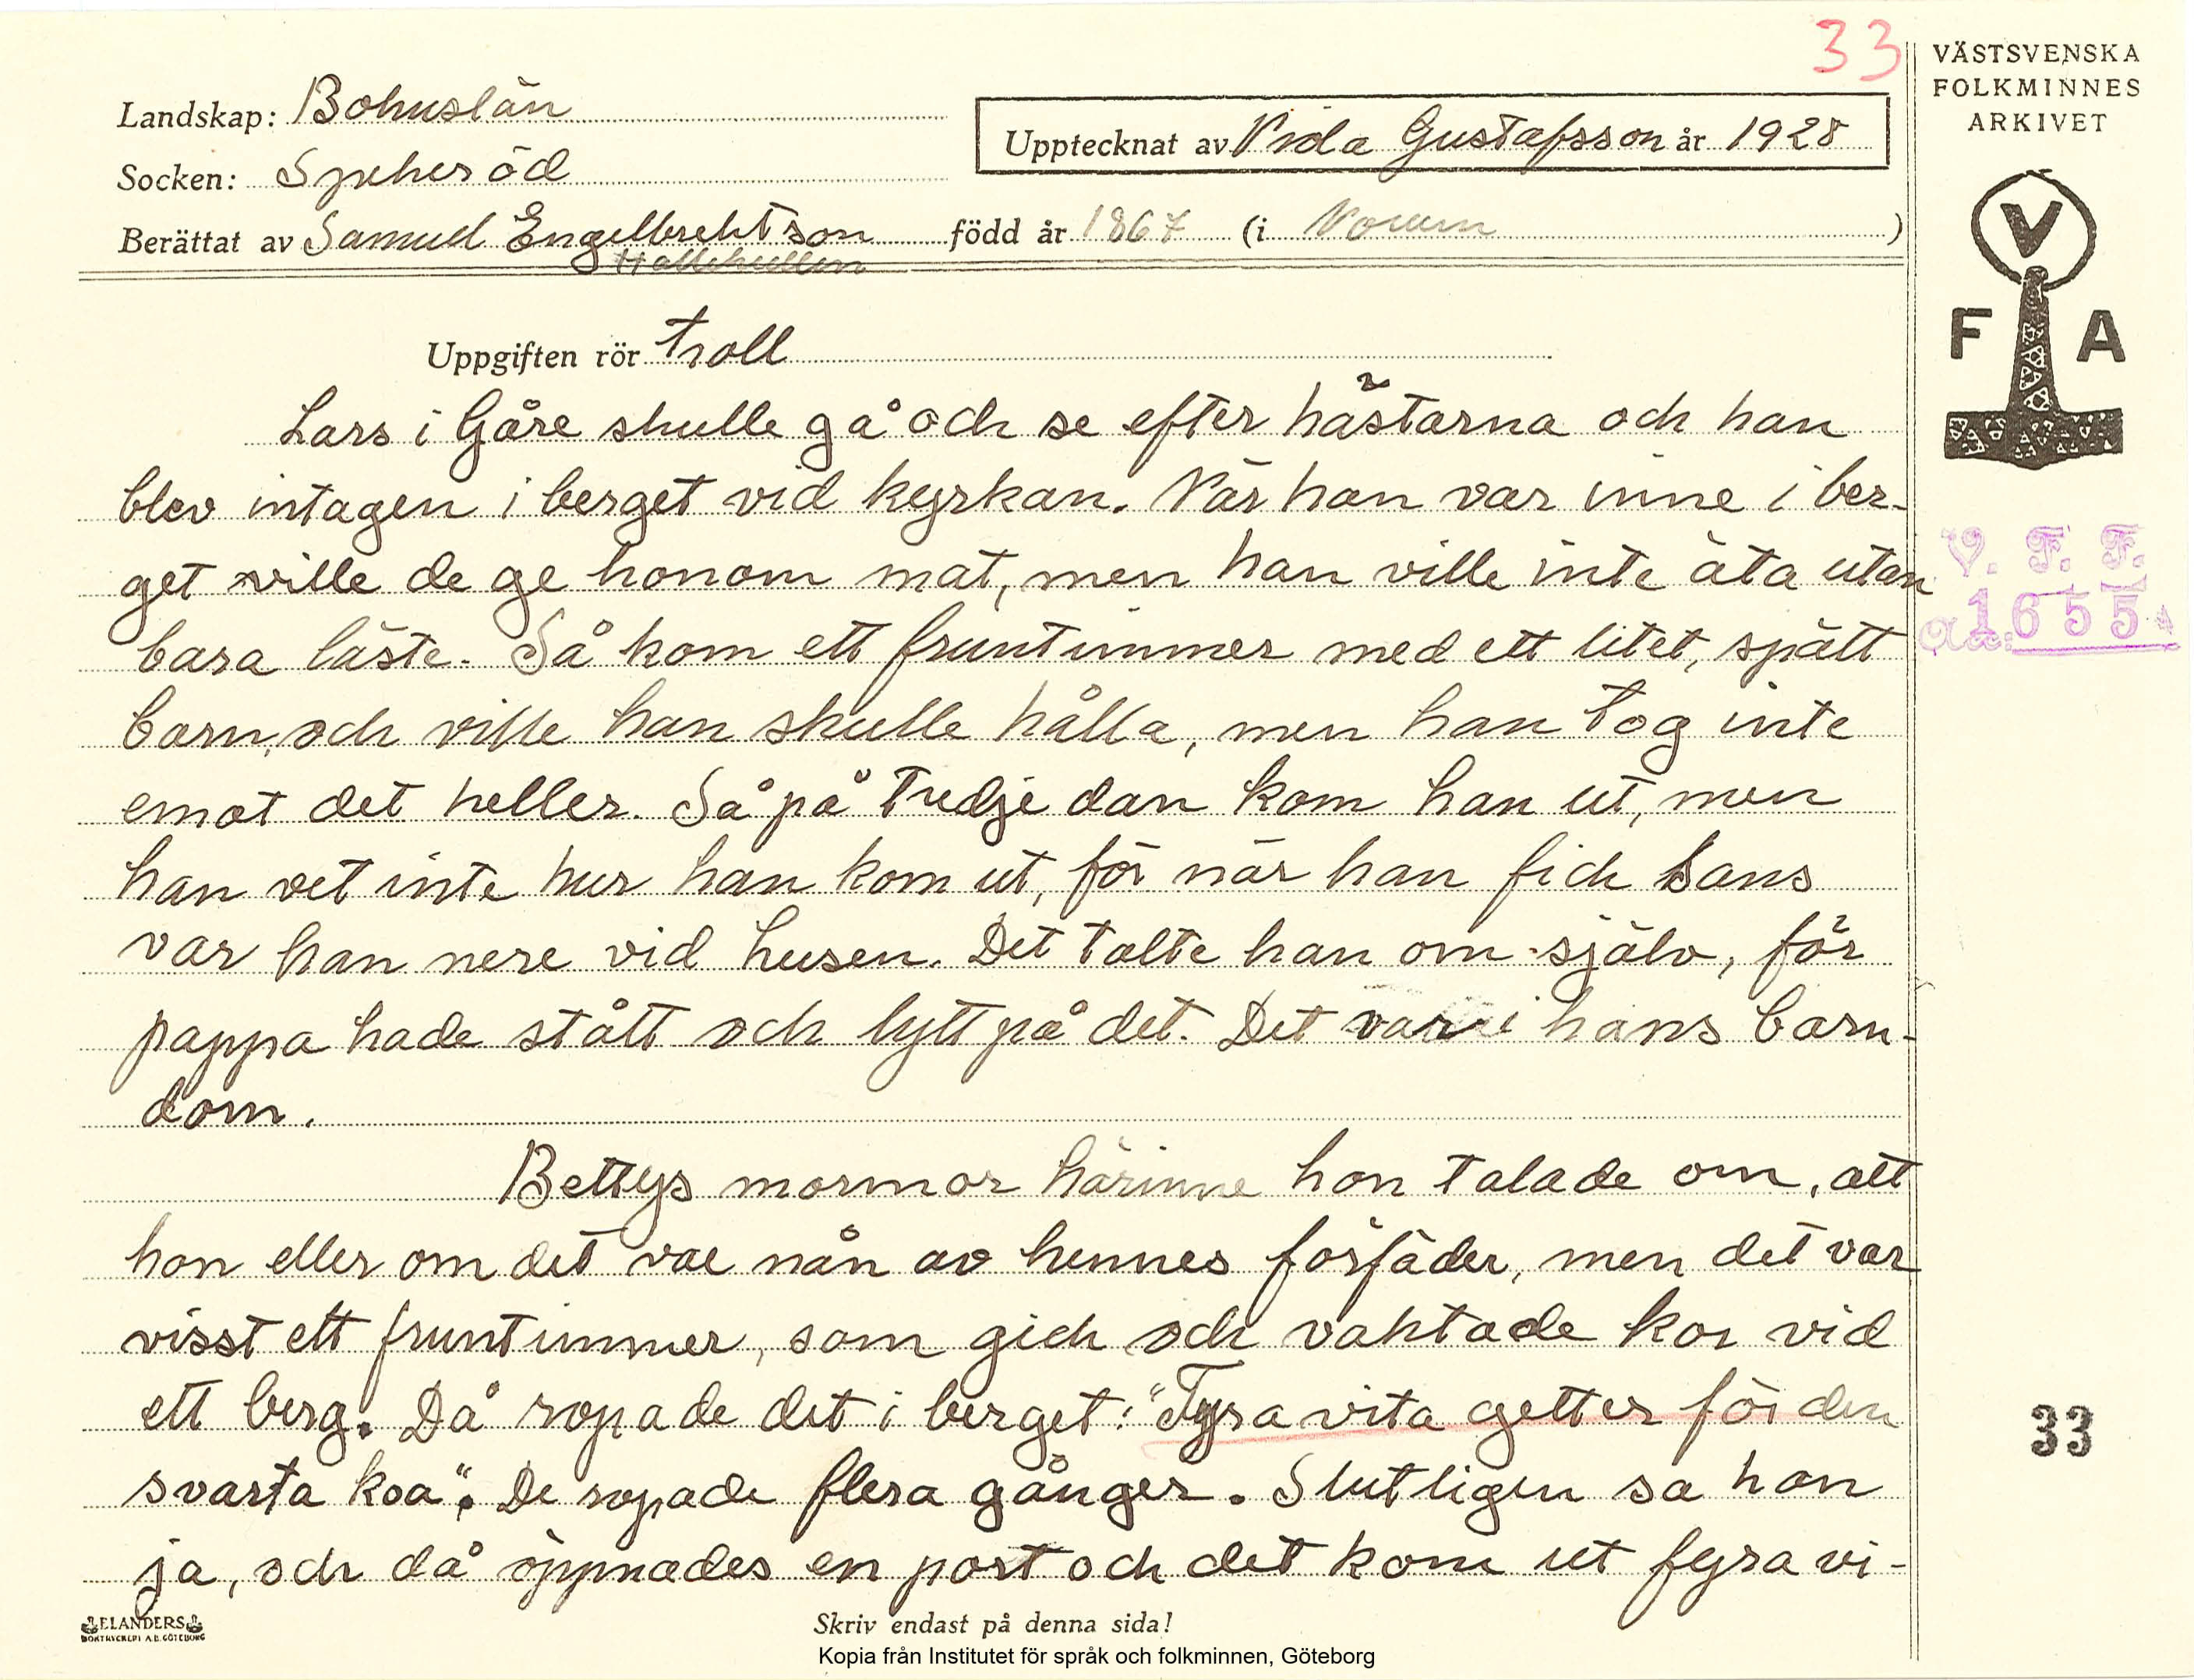 33
VÄSTSVENSKA
FOLKMINNES
ARKIVET
Landskap: Bohuslän
Upptecknat av Vida Gustafsson år 1928
Socken: Spekeröd
Berättat av Samuel Engelbrektson född år 1867 (i Norum)
V
F A
Uppgiften rör Troll
Lars i Gåre skulle gå och se efter hästarna och han
blev intagen i berget vid kyrkan. När han var inne i ber-
get ville de ge honom mat, men han ville inte äta utan
bara läste. Så kom ett fruntimmer med ett litet, spätt
barn, och ville han skulle hålla, men han tog inte
emot det heller. Så på tredje dan kom han ut, men
han vet inte hur han kom ut, för när han fick sans
var han nere vid husen. Det talte han om själv, för
pappa hade stått och lytt på det. Det var i hans barn-
dom.
Bettys mormor härinne hon talade om, att
hon eller om det var nån av hennes förfäder, men det var
visst ett fruntimmer, som gick och vaktade kor vid
ett berg. Då ropade det i berget: "Fyra vita getter för den
svarta koa". De ropade flera gånger. Slutligen sa hon
ja, och då öppnades en port och det kom ut fyra vi-
V. F. F.
acc. 1655
33
ELANDERS
BOKTRYCKERI A.B. GÖTEBORG
Skriv endast på denna sida!
Kopia från Institutet för språk och folkminnen, Göteborg